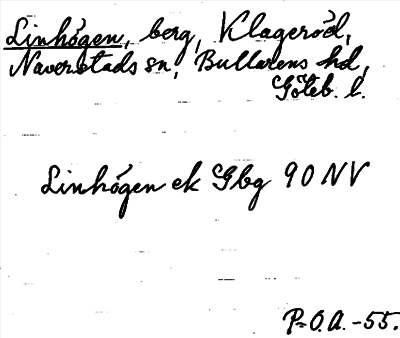 Linhögen, berg, Klageröd,
Naverstads sn, Bullarens hd,
Göteb. l.
Linhögen ek Gbg 90 NV
P-O.A. -55.